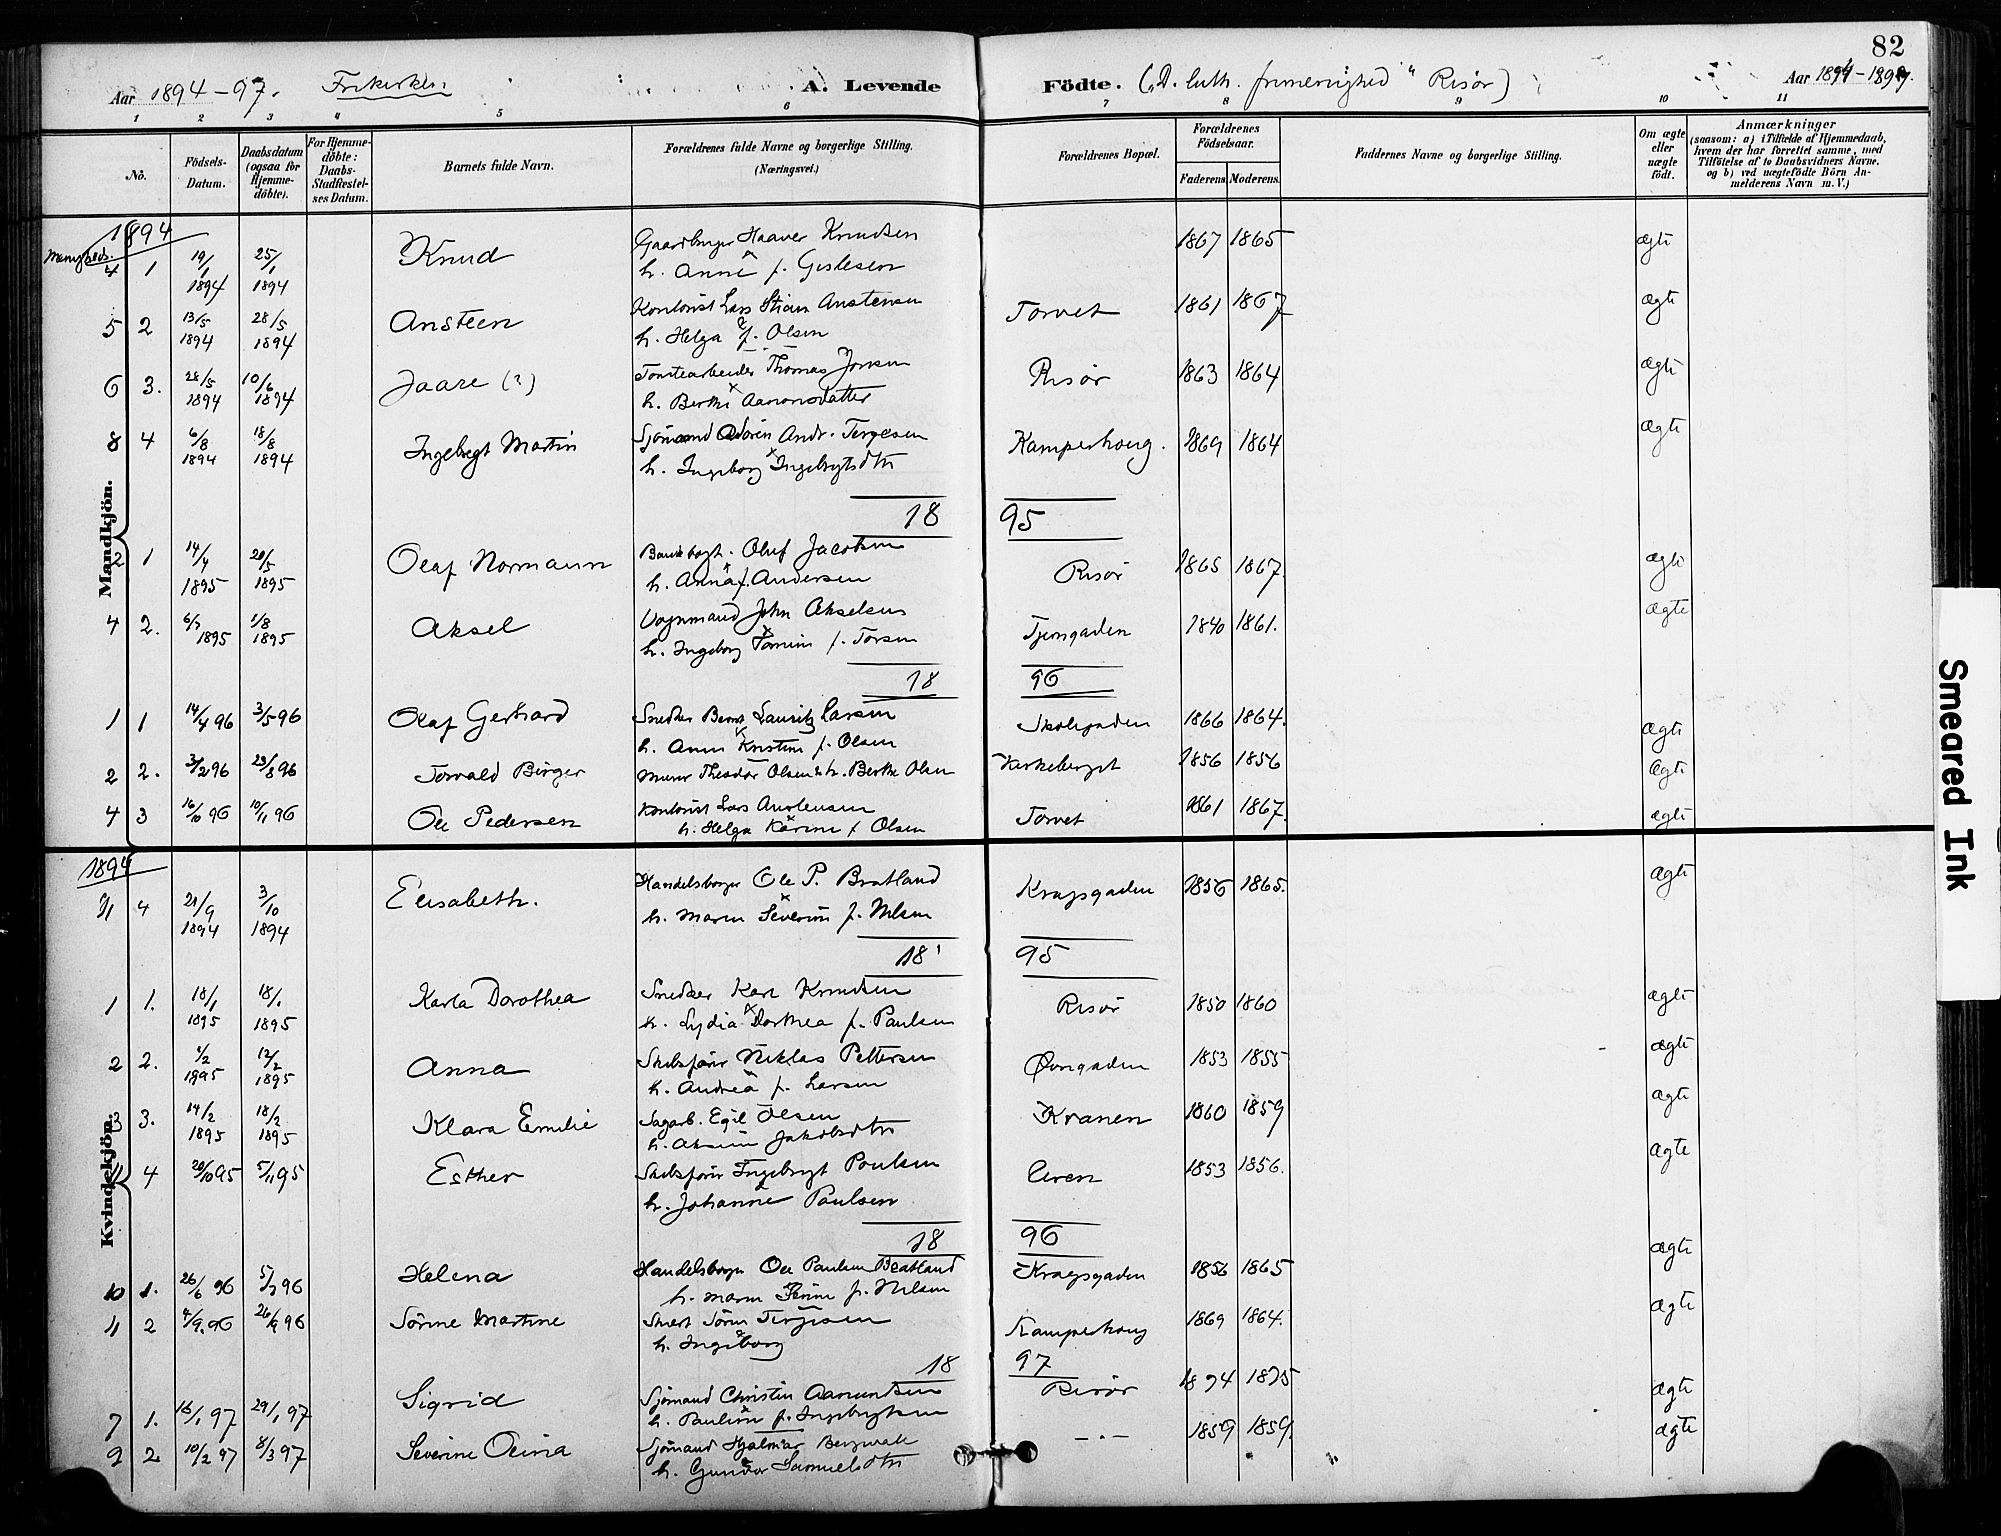 82
Aar 1894-97. Frikirken A. Levende Födte. („D. luth. frimenighed" Risør) Aar 1894-1897.
1 2 3 4 5 6 7 8 9 10 11
No.
Födsels-Datum.
Daabsdatum (ogsaa for Hjemme-döbte).
For Hjemme-döbte: Daabs-Stadfæstel-ses Datum.
Barnets fulde Navn.
Forældrenes fulde Navne og borgerlige Stilling.
(Næringsvei.)
Forældrenes Bopæl.
Forældrenes Födselsaar.
Faderens. Moderens.
Faddernes Navne og borgerlige Stilling.
Om ægte eller uægte födt.
Anmærkninger
(saasom: a) i Tilfælde af Hjemmedaab,
hvem der har forrettet samme, med
Tilföielse af to Daabsvidners Navne.
og b) ved uægtefödte Börn An-
melderens Navn m. V.)
Mandkjön.
1894
4 1 19/1 1894 25/1 1894 Knud Haaver Knudsen 1867 1865 ægte
h. Anne f.
5 2 13/5 1894 28/5 1894 Ansteen Kontorist Lars Stian Anstensen Torvet 1861 1867 ægte
h. Helga f. Olsen
6 3. 28/5 1894 10/6 1894 Jaare (?) Thomas Jonsen Risør 1863 1864 ægte
h. Berthe Aanonsdatter
8 4 6/8 1894 18/8 1894 Ingebregt Martin Sjömand Andr. Terjesen Kamperhoug. 1869 1864 ægte
h. Ingeborg Ingebrigtsdtr
18 95
2 1 14/4 1895 1895 Olaf Normann Oluf Jacobsen Risør 1865 1867. ægte
h. Anna f. Andersen
4 2. 1895 1/8 1895 Aksel Vognmand John Akselsen Tjensgaden 1840 1861. ægte
h. Ingeborg f.
18 96
1 1 14/4 96 3/5 96 Olaf Gerhard Snedker Bernt Lauritz Larsen Skolegaden 1866 1864. ægte
h. Anne Kristine f. Olsen
2 2. 96 23/8 96 Torvald Birger Murer Theodor Olsen & h. Berthe Olsen Kirkeberget 1856 1856 ægte
4 3 16/10 96 10/11 96 Ole Pedersen Kontorist Lars Anstensen Torvet 1861 1867. ægte
h. Helga Karine f. Olsen
Kvindekjön.
1894
4 21/9 1894 3/10 1894 Elisabeth. Handelsborger Ole P. Bratland Kragsgaden 1856 1865. ægte
h. Maren Severine f. Nilsen
18 95
1 1. 18/1 1895 18/1 1895 Karla Dorothea Snedker Karl Knudsen Risør 1850 1860 ægte
h. Lydia Dorthea f. Paulsen
2 2. 1/2 1895 12/2 1895 Anna Skibsförer Niklas Pettersen Øvregaden 1853 1855 ægte
h. Andrea f. Larsen
3 3. 14/2 1895 18/2 1895 Klara Emilie Sagarb. Egil Olsen Kranen 1860 1859 ægte
h. Jakobsdtr
11 4 20/10 95 5/11 95 Esther Skibsförer Ingebregt Poulsen 1853 1856. ægte
h. Johanne Paulsen
18 96
10 1. 26/6 96 5/7 96 Helena Handelsborger Ole Paulsen Bratland Kragsgaden 1856 1865 ægte
h. Maren f. Nilsen
11 2 4/9. 96 26/9 96 Sörine Martine Sören Terjesen Kamperhoug 1869 1864. ægte
h. Ingeborg
18 97
7 1. 16/1 97 29/1 97 Sigrid Sjömand Christen Aanundsen Risør 1874 1875 ægte
h. Pauline f. Ingebrigtsen
9 2 10/2 97 8/3 97 Severine Oeina Sjömand Hjalmar - " - 1859 1859. ægte
h. Gunvor Samuelsdtr
Smeared Ink